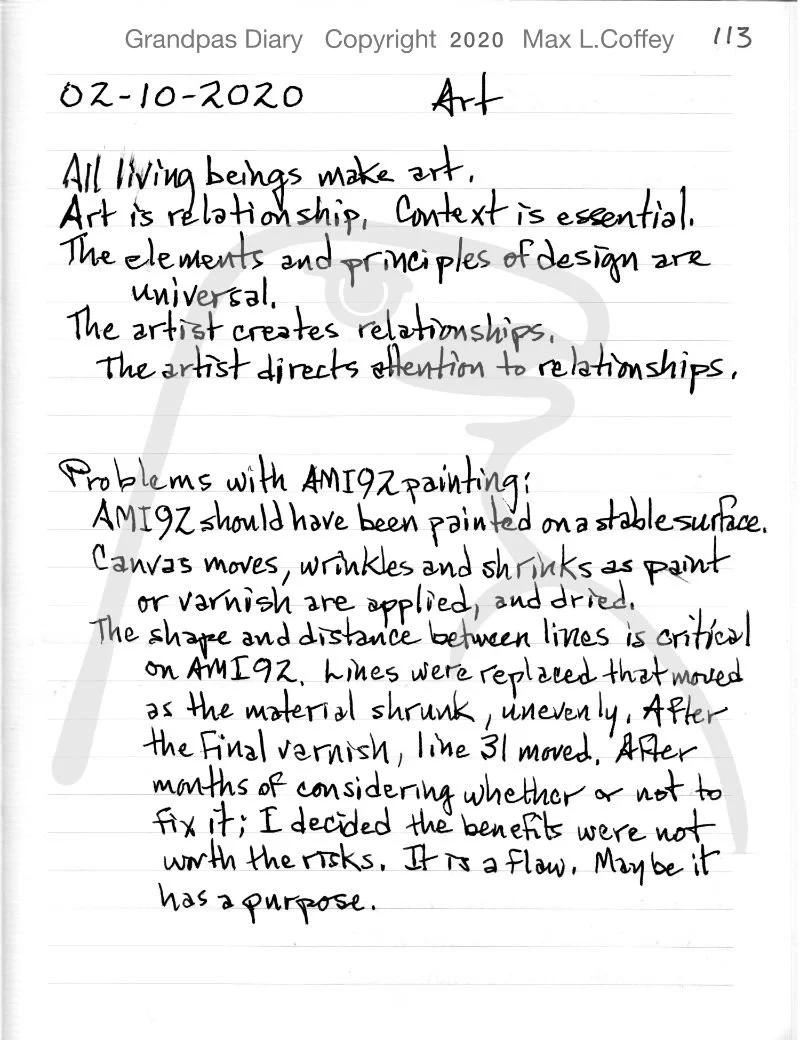 Grandpas Diary Copyright 2020 Max L.Coffey 113
02-10-2020 Art
All living beings make art.
Art is relationship. Context is essential.
The elements and principles of design are
universal.
The artist creates relationships.
The artist directs attention to relationships.
Problems with AMI92 painting:
AMI92 should have been painted on a stable surface.
Canvas moves, wrinkles and shrinks as paint
or varnish are applied, and dried.
The shape and distance between lines is critical
on AMI92. Lines were replaced that moved
as the material shrunk, unevenly. After
the final varnish, line 31 moved. After
months of considering whether or not to
fix it; I decided the benefits were not
worth the risks. It is a flaw. Maybe it
has a purpose.